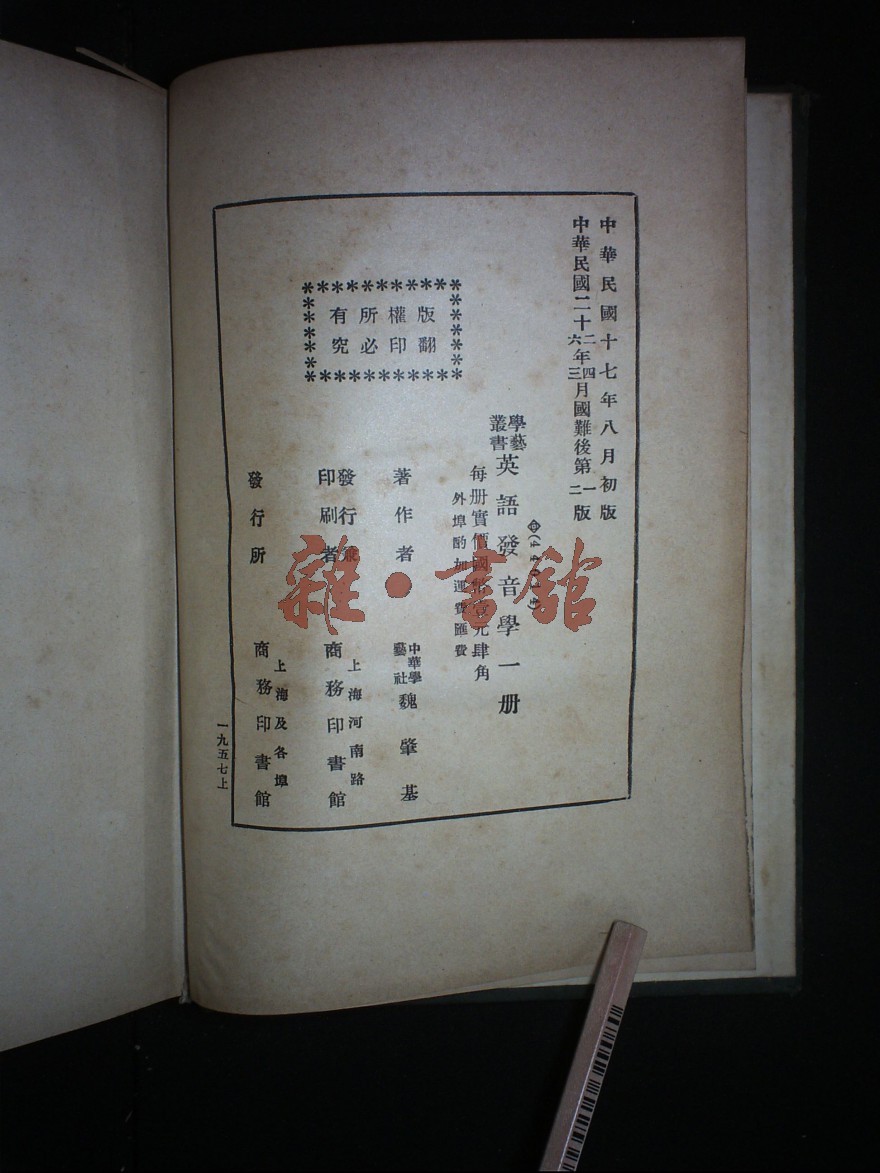 中華民國十七年八月初版
中華民國二十二年四月國難後第一版
六三二
學藝
叢書
英語發音學一册
每册實價國幣壹元肆角
外埠酌加運費匯費
著作者
中華學
藝社
魏肇基
發行兼
印刷者
上海河南路
商務印書館
發行所
上海及各埠
商務印書館
版權所有
翻印必究
一九五七上
雜·書館